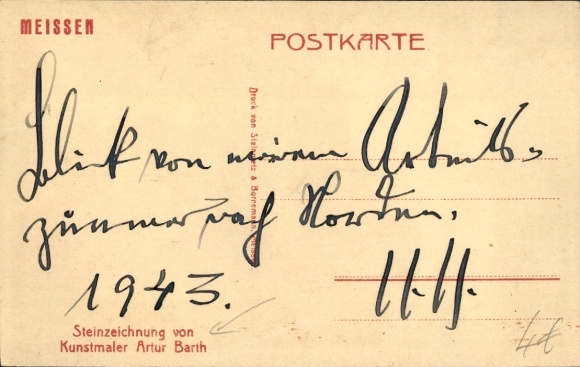 MEISSEN
POSTKARTE
Druck von & Borremann,
Blick von meinem Arbeits-
zimmer nach Norden.
1943.
Steinzeichnung von
Kunstmaler Artur Barth